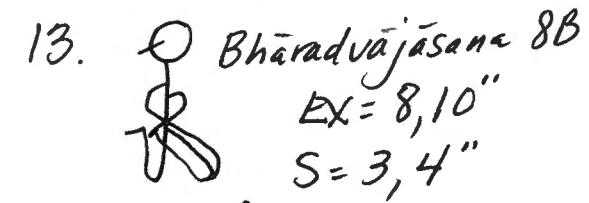 13. Bhāradvājāsana 8B
EX = 8,10"
S = 3,4"